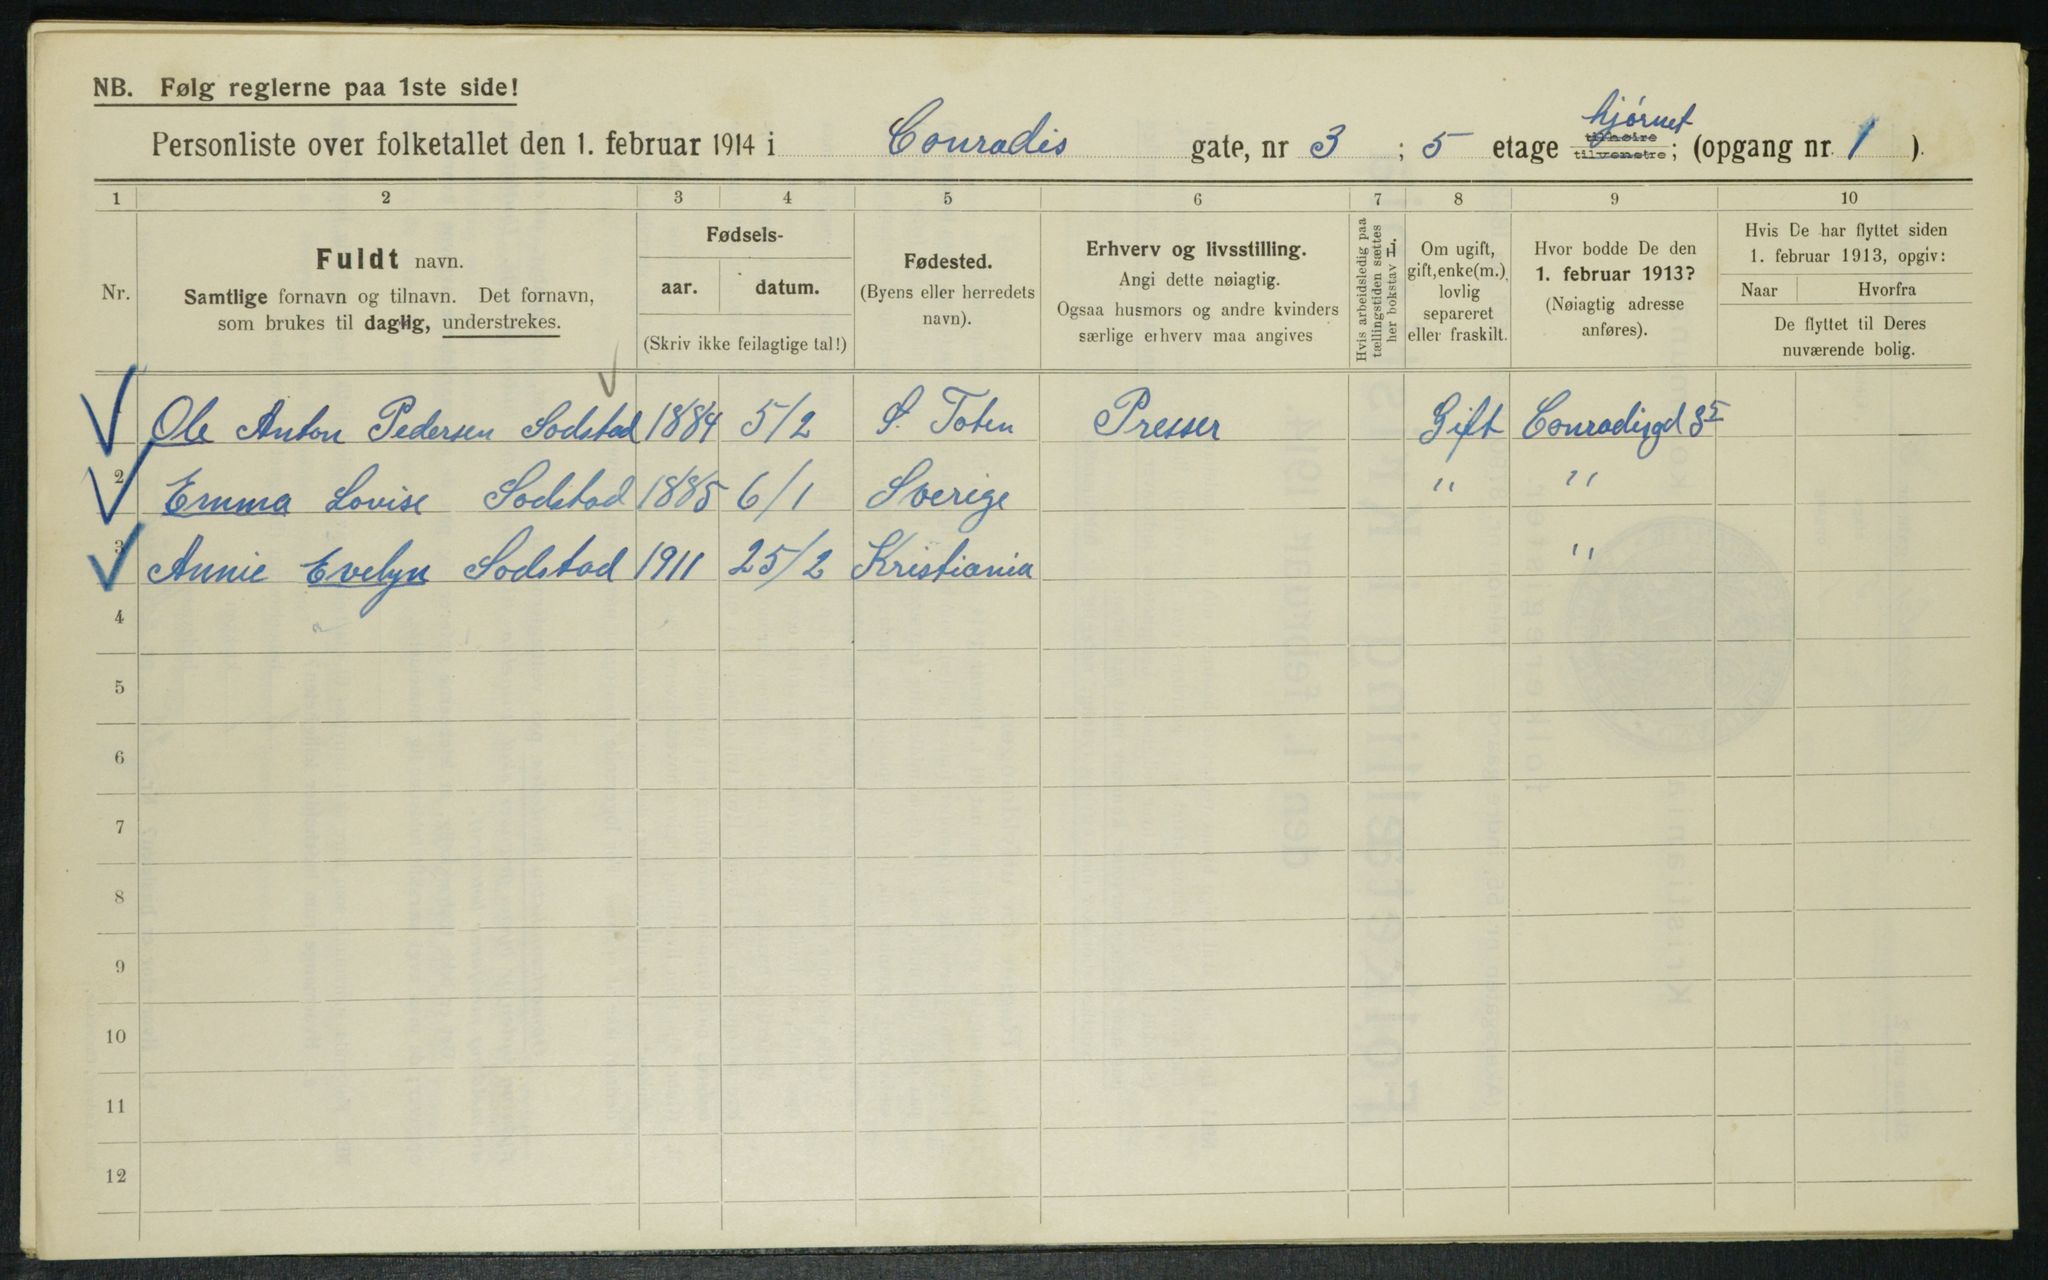 NB. Følg reglerne paa 1ste side!
Personliste over folketallet den 1. februar 1914 i Conradis gate, nr 3 ; 5 etage hjørnet til høire tilvenstre ; (opgang nr. 1 ).
1 2 3 4 5 6 7 8 9 10
Nr.
Fuldt navn.
Samtlige fornavn og tilnavn. Det fornavn,
som brukes til daglig, understrekes.
Fødsels-
aar. datum.
(Skriv ikke feilagtige tal!)
Fødested.
(Byens eller herredets
navn).
Erhverv og livsstilling.
Angi dette nøiagtig.
Ogsaa husmors og andre kvinders
særlige erhverv maa angives
Hvis arbeidsledig paa
tællingstiden sættes
her bokstav L.
Om ugift,
gift, enke(m.),
lovlig
separeret
eller fraskilt.
Hvor bodde De den
1. februar 1913?
(Nøiagtig adresse
anføres).
Hvis De har flyttet siden
1. februar 1913, opgiv:
Naar Hvorfra
De flyttet til Deres
nuværende bolig.
Ole Anton Pedersen Sodstad 1884 5/2 S. Toten Presser Gift Conradisgd 3 5
2 Emma Lovise Sodstad 1885 6/1 Sverige " "
3 Annie Evelyn Sodstad 1911 25/2 Kristiania "
4
5
6
7
8
9
10
11
12